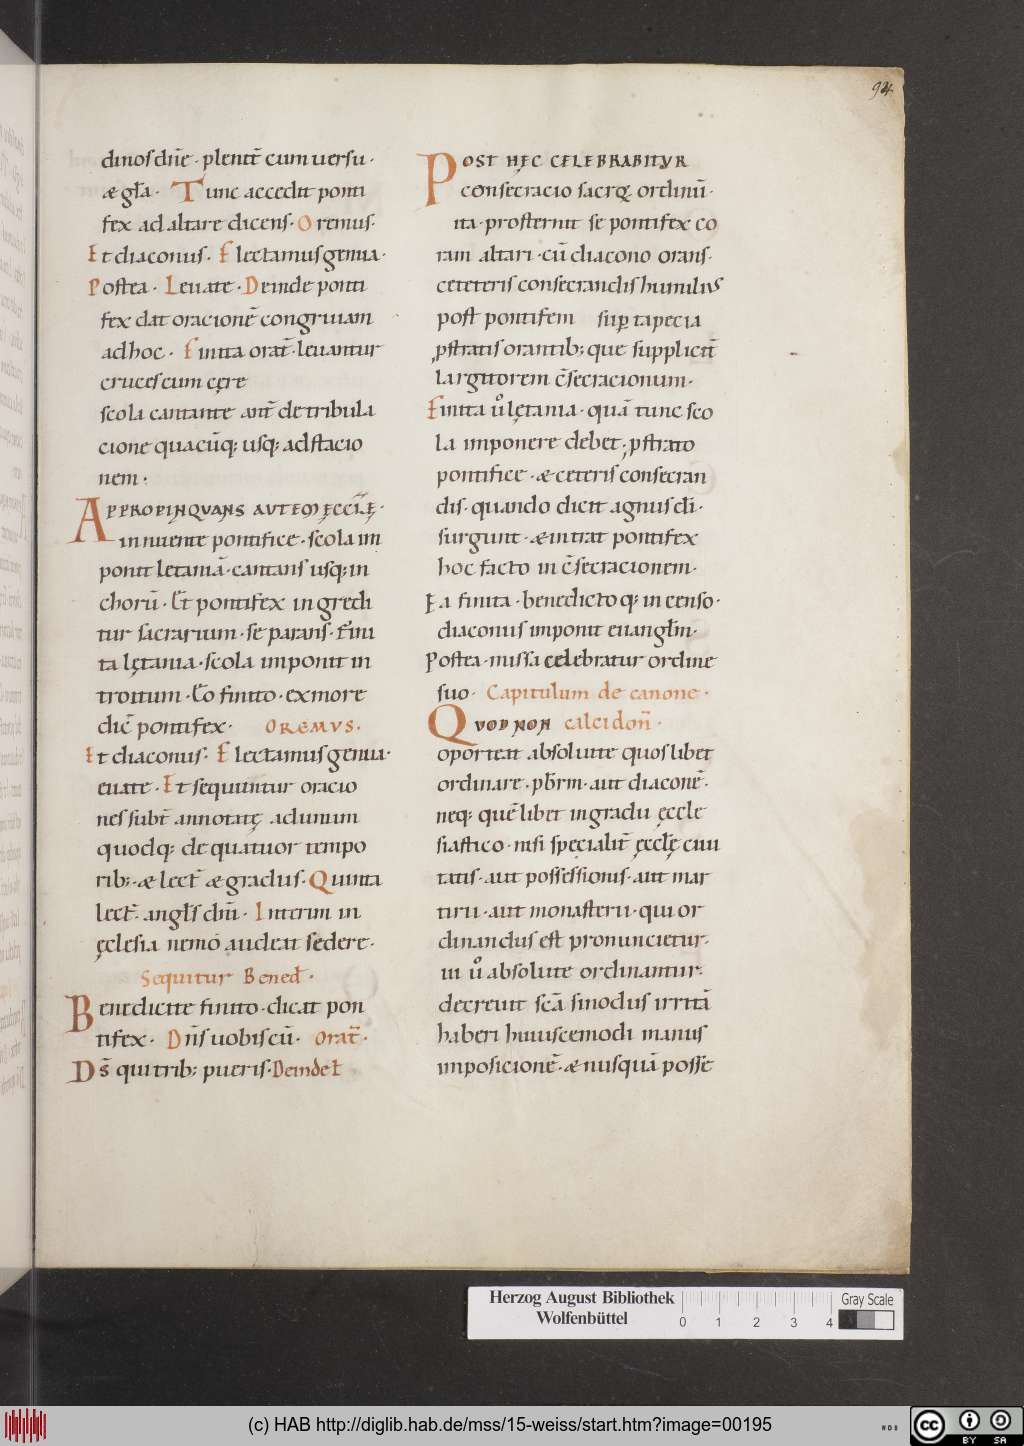 94
dinos dñe · plenit̄ cum uersu ·
& gl̄a · Tunc accedit ponti
fex ad altare dicens · Oremus ·
Et diaconus · Flectamus genua ·
Postea · Leuate · Deinde ponti
fex dat oracionē congruam
ad hoc · Finita orat̄ · leuantur
cruces cum cęre
scola cantante ant̄ de tribula
cione quacūq; usq; ad stacio
nem ·
APPROPINQVANS AVTEM ĘCCLĘ ·
innuente pontifice · scola im
ponit letaniā · cantans usq; in
chorū · Et pontifex ingredi
tur sacrarium · se parans · Fini
ta lętania · scola imponit in
troitum · Eo finito · ex more
dic̄ pontifex · OREMVS ·
Et diaconus · Flectamus genua ·
euate · Et sequuntur oracio
nes subt̄ annotatę ad unum
quodq; de quatuor tempo
rib; · & lect̄ & gradus · Quinta
lect̄ · angl̄s dn̄i · Interim in
ęclesia nemo audeat sedere ·
Sequitur Bened̄ ·
Benedicite finito · dicat pon
tifex · Dn̄s uobiscū · Orat̄ ·
Ds̄ qui trib; pueris · Deinde ł
POST HĘC CELEBRABITVR
consecracio sacrꝗ ordinū ·
ita · prosternit se pontifex co
ram altari · cū diacono orans ·
ceteteris consecrandis humilius
post pontifem sup̱ tapecia
ꝓstratis orantib; que supplicit̄
largitorem c̄secracionum ·
Finita ů lętania · quā tunc sco
la imponere debet ; ꝓstrato
pontifice · & ceteris consecran
dis · quando dicit agnus di ·
surgunt · & intrat pontifex
hoc facto in c̄secracionem ·
Ea finita · benedictoq; incenso ·
diaconus imponit euangl̄m ·
Postea · missa celebratur ordine
suo · Capitulum de canone ·
QVOD NON calcidon̄ ·
oporteat absolute quoslibet
ordinare · pb̄rm · aut diaconē ·
neq; quēlibet in gradu ęccle
siastico · nisi specialit̄ ęccl̄ę ciui
tatis · aut possessionis · aut mar
tirii · aut monasterii · qui or
dinandus est pronuncietur ·
ui ů absolute ordinantur ·
decreuit scā sinodus irritā
haberi huiuscemodi manus
imposicionē · & nusquā posse
Herzog August Bibliothek
Wolfenbüttel
0 1 2 3 4
Gray Scale
(c) HAB http://diglib.hab.de/mss/15-weiss/start.htm?image=00195
cc BY SA